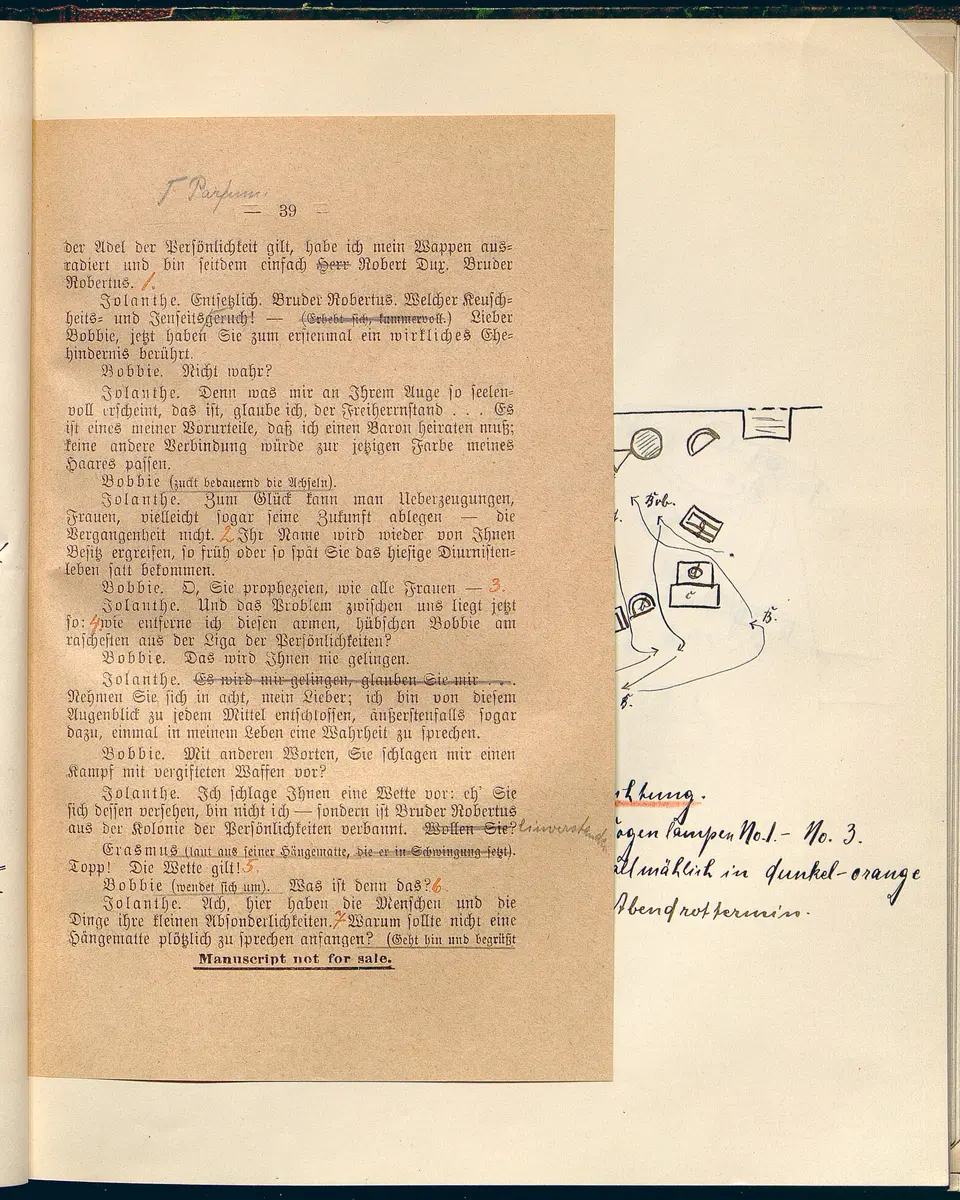 T Parfum.
— 39 —
der Adel der Persönlichkeit gilt, habe ich mein Wappen aus-
radiert und bin seitdem einfach Herr Robert Dux. Bruder
Robertus. 1.
Jolanthe. Entsetzlich. Bruder Robertus. Welcher Keusch-
heits- und Jenseitsgeruch! — (Erhebt sich, kummervoll.) Lieber
Bobbie, jetzt haben Sie zum erstenmal ein wirkliches Ehe-
hindernis berührt.
Bobbie. Nicht wahr?
Jolanthe. Denn was mir an Ihrem Auge so seelen-
voll erscheint, das ist, glaube ich, der Freiherrnstand . . . Es
ist eines meiner Vorurteile, daß ich einen Baron heiraten muß;
keine andere Verbindung würde zur jetzigen Farbe meines
Haares passen.
Bobbie (zuckt bedauernd die Achseln).
Jolanthe. Zum Glück kann man Ueberzeugungen,
Frauen, vielleicht sogar seine Zukunft ablegen — die
Vergangenheit nicht. 2 Ihr Name wird wieder von Ihnen
Besitz ergreifen, so früh oder so spät Sie das hiesige Diurnisten-
leben satt bekommen.
Bobbie. O, Sie prophezeien, wie alle Frauen — 3.
Jolanthe. Und das Problem zwischen uns liegt jetzt
so: 4 wie entferne ich diesen armen, hübschen Bobbie am
raschesten aus der Liga der Persönlichkeiten?
Bobbie. Das wird Ihnen nie gelingen.
Jolanthe. Es wird mir gelingen, glauben Sie mir . . .
Nehmen Sie sich in acht, mein Lieber; ich bin von diesem
Augenblick zu jedem Mittel entschlossen, äußerstenfalls sogar
dazu, einmal in meinem Leben eine Wahrheit zu sprechen.
Bobbie. Mit anderen Worten, Sie schlagen mir einen
Kampf mit vergifteten Waffen vor?
Jolanthe. Ich schlage Ihnen eine Wette vor: eh' Sie
sich dessen versehen, bin nicht ich — sondern ist Bruder Robertus
aus der Kolonie der Persönlichkeiten verbannt. Wollen Sie?
Erasmus (laut aus seiner Hängematte, die er in Schwingung setzt).
Topp! Die Wette gilt! 5.
Bobbie (wendet sich um). Was ist denn das? 6.
Jolanthe. Ach, hier haben die Menschen und die
Dinge ihre kleinen Absonderlichkeiten. 7 Warum sollte nicht eine
Hängematte plötzlich zu sprechen anfangen? (Geht hin und begrüßt
Manuscript not for sale.
Bob.
B.
B.
chtung.
ögen Lampen No. 1. – No. 3.
allmählich in dunkel-orange
Abendrottermin.